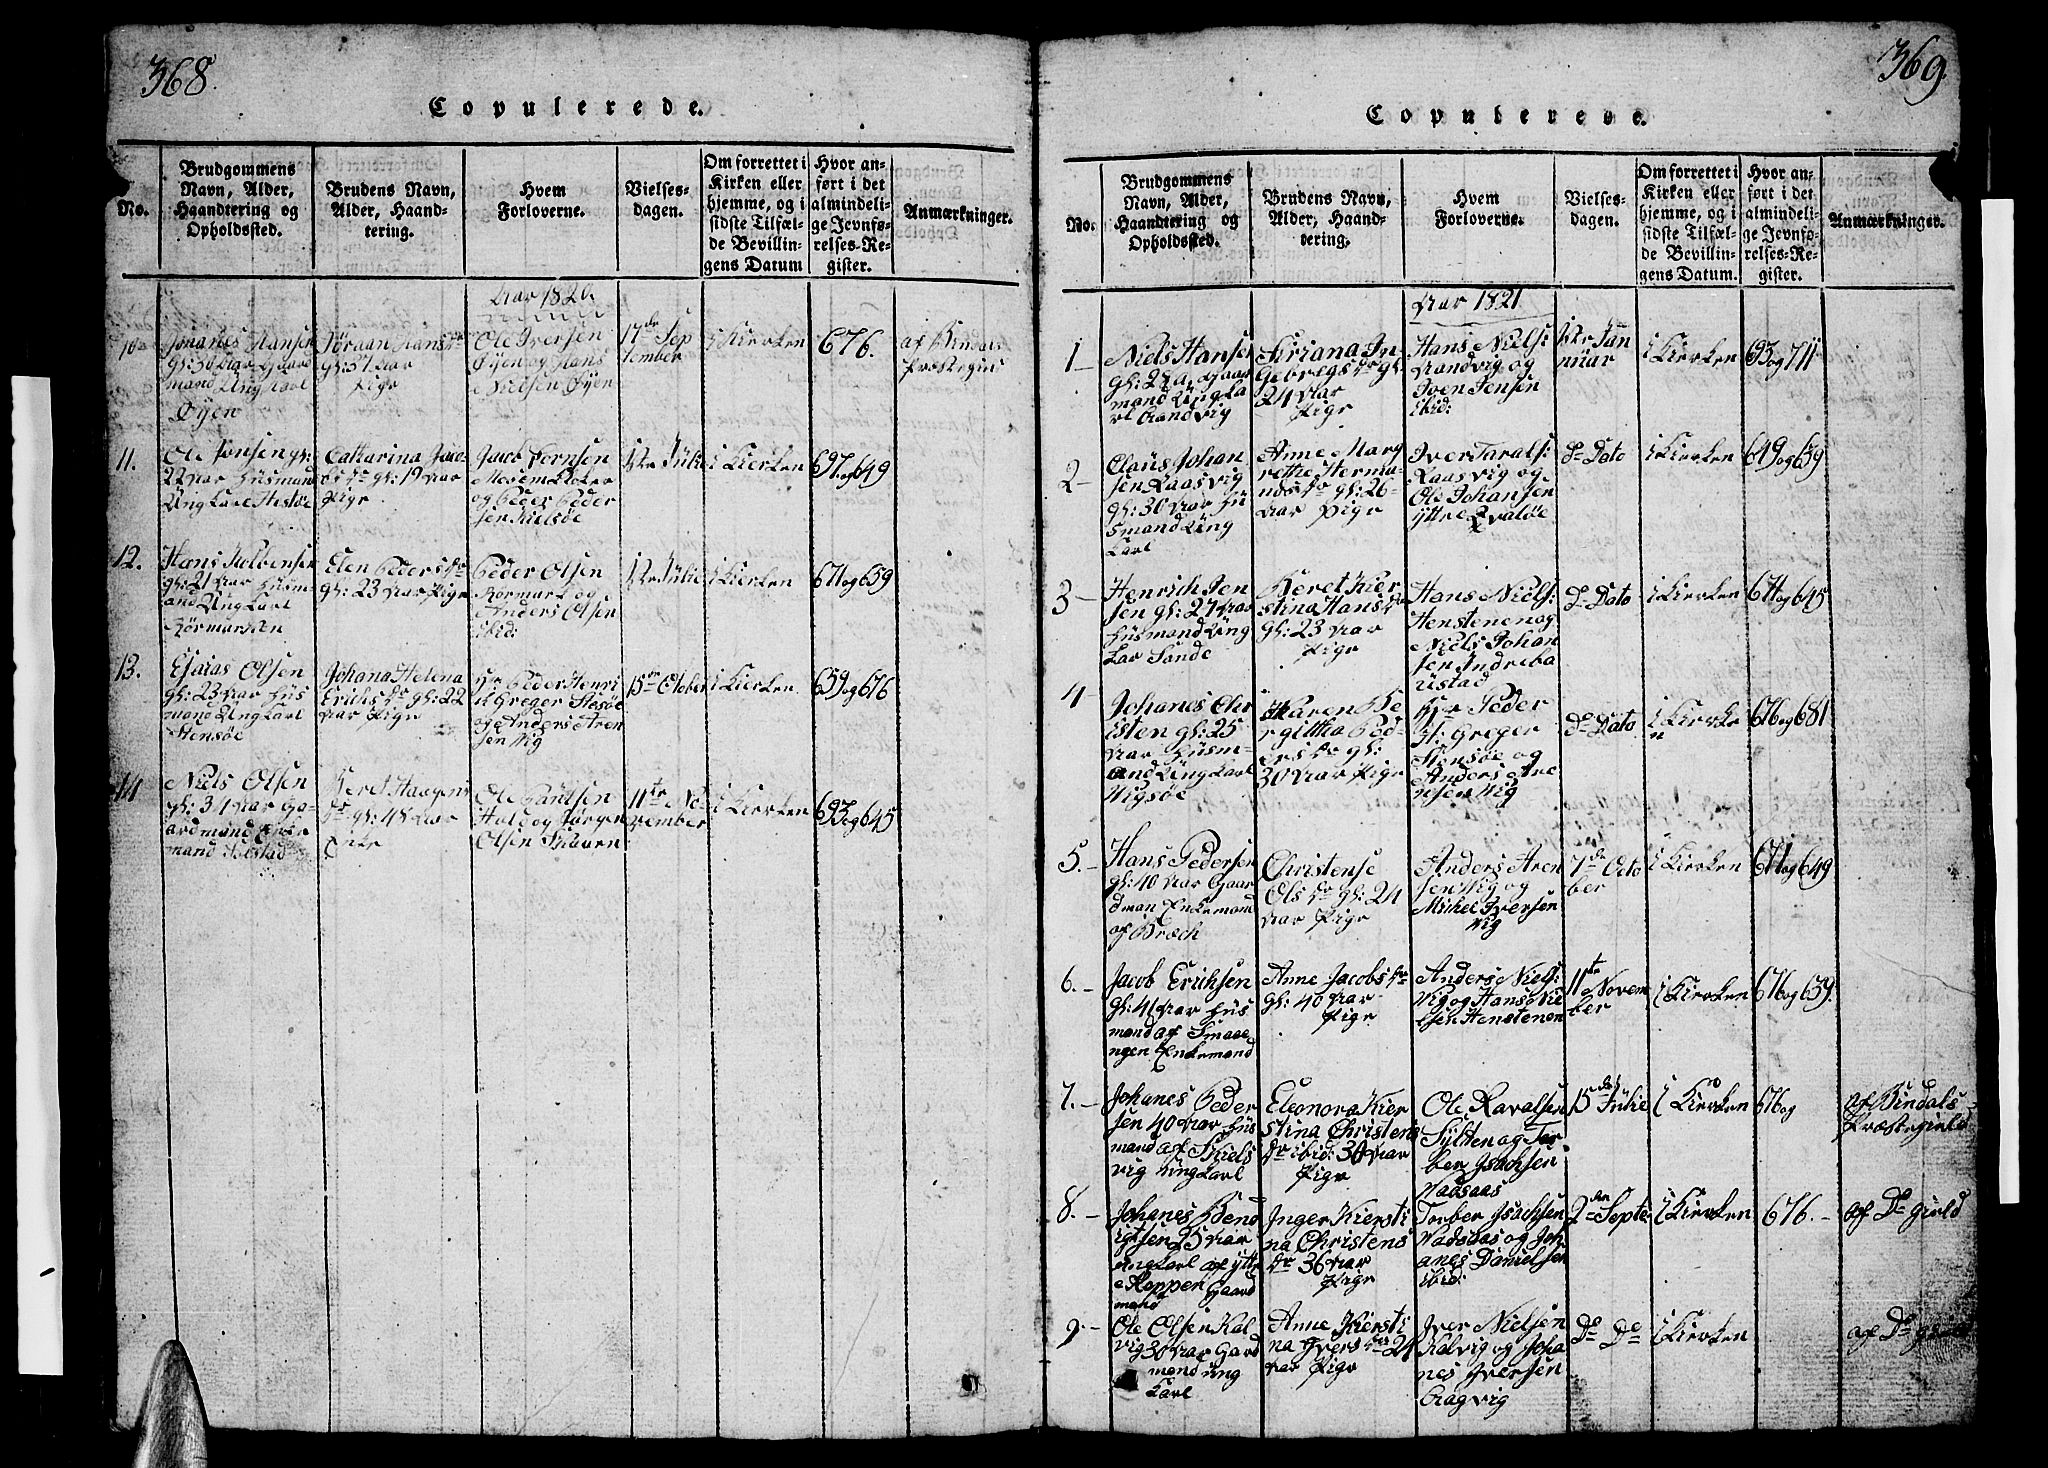 368.
Copulerede.
No.
Brudgommens
Navn, Alder,
Haandtering og
Opholdssted.
Brudens Navn,
Alder, Haand-
tering.
Hvem
Forloverne.
Vielses-
dagen.
Om forrettet i
Kirken eller
hjemme, og i
sidste Tilfæl-
de Bevillin-
gens Datum
Hvor an-
ført i det
almindeli-
ge Jevnfø-
relses-Re-
gister.
Anmærkninger.
Aar 1820.
10
Johanes Hansen
gl: 30 Aar Gaar
mand Ung Karl
Øyen
Jøraan Hans dr
gl: 37 Aar
Pige
Ole Iversen
Øyen og Hans
Nielsen Øyen
17de Sep
tember
i Kierken
676.
af Bindals
11.
Ole Jonsen gl:
22 Aar Huusmand
Ung Karl
Catharina Jaco-
bs dr gl: 19 Aar
Pige
og Peder Peder
sen
12te Julie
i Kierken
697 og 649
12.
Hans
gl: 21 Aar Husm
and Ung Karl
Elen Peders dr
gl: 23 Aar Pige
Peder Olsen
Kørmark og
Anders Olsen
ibid:
12te Julie
i Kierken
671 og 659
13.
Esaias Olsen
gl: 23 Aar Hus
mand Ung Karl
Stensøe
Johana Helena
Erichs dr gl: 22
Aar Pige
Hr Peder Henri
k Greger Stensøe
og Anders Aren
sen Vig
15de October
i Kierken
659 og 676
14
Niels Olsen
gl: 34 Aar Ga-
ardmand Enke
mand
Beret Haagens
dr gl: 48 Aar
Enke
Ole Paulsen
Hald og Jørgen
Olsen Skaarn
11te No-
vember
i Kierken
693 og 645
369
Copulerede.
No.
Brudgommens
Navn, Alder,
Haandtering og
Opholdssted.
Brudens Navn,
Alder, Haand-
tering.
Hvem
Forloverne.
Vielses-
dagen.
Om forrettet i
Kirken eller
hjemme, og i
sidste Tilfæl-
de Bevillin-
gens Datum.
Hvor an-
ført i det
almindeli-
ge Jevnfø-
relses-Re-
gister.
Anmærkninger.
Aar 1821
1
Niels Hansen
gl: 27 Aar Gaar
mand Ung Ka
rl Sandvig
Siriana In
gebregs dr gl:
24 Aar
Pige
Hans Niels:
Sandvig og
Iven Jensen
ibid:
12te Jan
nuar
i Kierken
693 og 711
2
Claus Johan
sen Raasvig
gl: 30 Aar Hu
smand Ung
Karl
Anne Marg
rethe Herma
nds dr gl: 26
Aar Pige
Iver Taralf:
Raasvig og
Ole Johansen
ytre Qvaløe
Do Dato
i Kierken
649 og 659
3
Henrich Jen
sen gl: 27 Aar
Husmand Ung
Kar Sande
Beret Kier
stina Hans dr
gl: 23 Aar
Pige
Hans Niels:
Henstenen og
Niels Johan
sen Indreba
ustad
Do Dato
i Kierken
671 og 645
4
Johanes Chr
isten gl: 25
Aar Husm-
and Ung Karl
Vigsøe
Karen Be
rgitha Ped-
ers dr gl:
30 Aar Pige
Hr Peder
H: Greger
Stensøe og
Anders Are
nsen Vig
Do Dato
i Kierke
n
676 og 681
5.
Hans Pedersen
gl: 40 Aar Gaar
dman Enkemand
af Bræch
Christense
Ols dr gl: 24
Aar Pige
Anders Aren
sen Vig og
Michel Iversen
Vig
7de Octo
ber
i Kierken
671 og 649
6.
Jacob Eriksen
gl: 41 Aar Hus
mand af Smaae
ngen Enkemand
Anne Jacobs dr
gl: 40 Aar
Pige
Anders Niels:
Vig og Hans Nie
lsen Henstenen
11te Novem
ber
i Kierken
676 og 659.
7.
Johanes Peder
sen 40 Aar Hus
mand af Skiels
vig Ung Karl
Eleonora Kier
stina Christens
dr ibid: 30 Aar
Pige
Ole Ravalsen
Sylten og Tor
ber Isachsen
Vadsaas
15de Julie
i Kierken
676 og
af Bindals
Præstegield
8.
Johanes Bend
igtsen 25 Aar
ung Karl af ytr
e Roppen Gaard
mand
Inger Kiersti
na Christens
dr 36 Aar
Pige
Torber Isachsen
Vadsaas og Joh
anes Danielsen
ibid:
2den Septe
i Kierken
676.
af Do gield
9.
Ole Olsen Kal
vig 30 Aar Gard
mand ung
Karl
Anne Kiersti
na Ivers dr 24
Aar Pige
Iver Nielsen
Kalvig og Joha
nes Iversen
Do Do
i Kierken
af Do